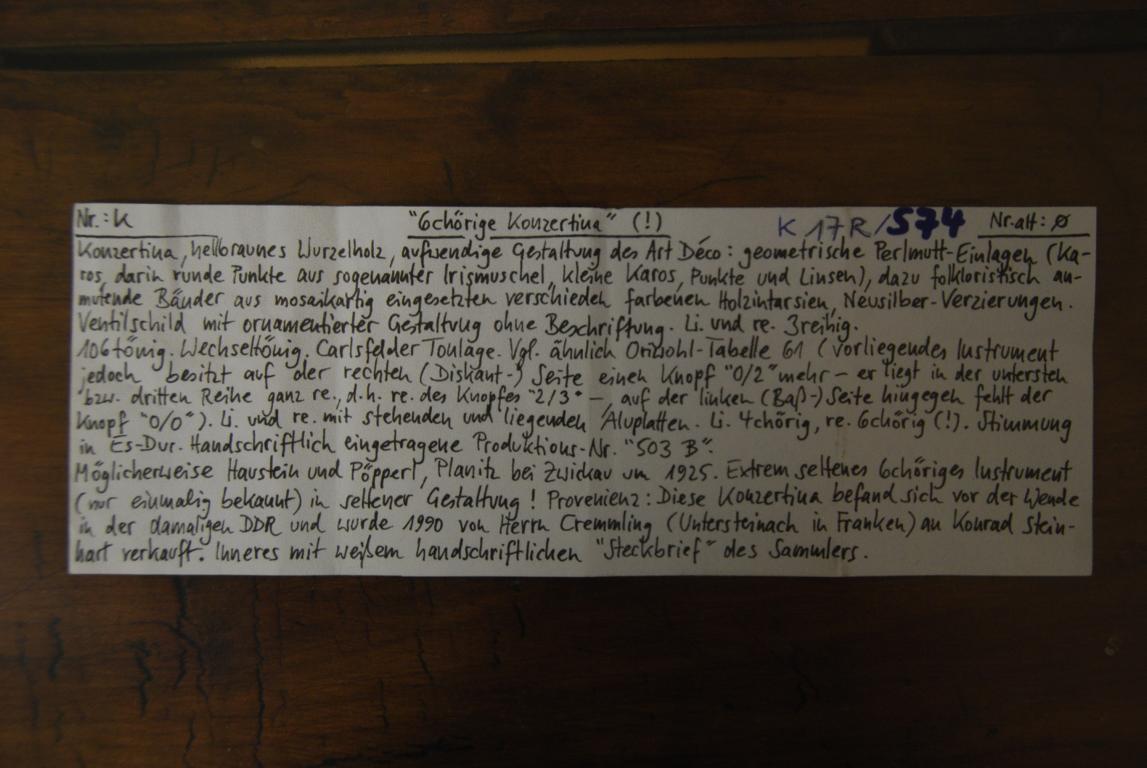 Nr.: K "6chörige Konzertina" (!) K 17R/S74 Nr. alt: ø
Konzertina, hellbraunes Wurzelholz, aufwendige Gestaltung des Art Déco: geometrische Perlmutt-Einlagen (Ka-
ros, darin runde Punkte aus sogenannter Irismuschel, kleine Karos, Punkte und Linsen), dazu folkloristisch an-
mutende Bänder aus mosaikartig eingesetzten verschieden farbenen Holzintarsien, Neusilber-Verzierungen.
Ventilschild mit ornamentierter Gestaltung ohne Beschriftung. Li. und re. 3reihig.
106tönig. Wechseltönig. Carlsfelder Tonlage. Vgl. ähnlich Oriwohl-Tabelle 61 (vorliegendes Instrument
jedoch besitzt auf der rechten (Diskant-) Seite einen Knopf "0/2" mehr – er liegt in der untersten
bzw. dritten Reihe ganz re., d.h. re. des Knopfes "2/3" –, auf der linken (Baß-) Seite hingegen fehlt der
Knopf "0/0"). Li. und re. mit stehenden und liegenden Aluplatten. Li. 4chörig, re. 6chörig (!). Stimmung
in Es-Dur. Handschriftlich eingetragene Produktions-Nr. "503 B".
Möglicherweise Haustein und Pöpperl, Planitz bei Zwickau um 1925. Extrem seltenes 6chöriges Instrument
(nur einmalig bekannt) in seltener Gestaltung! Provenienz: Diese Konzertina befand sich vor der Wende
in der damaligen DDR und wurde 1990 von Herrn Cremmling (Untersteinach in Franken) an Konrad Stein-
hart verkauft. Inneres mit weißem handschriftlichen "Steckbrief" des Sammlers.